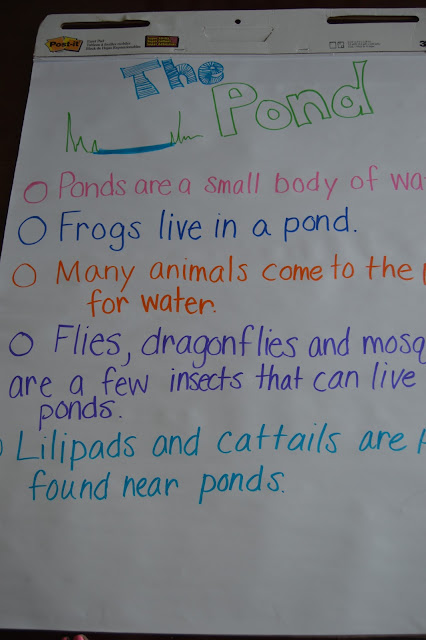 Post-it
The
Pond
Ponds are a small body of wa
Frogs live in a pond.
Many animals come to the
for water.
Flies, dragonflies and mosq
are a few insects that can live
ponds.
Lilipads and cattails are
found near ponds.